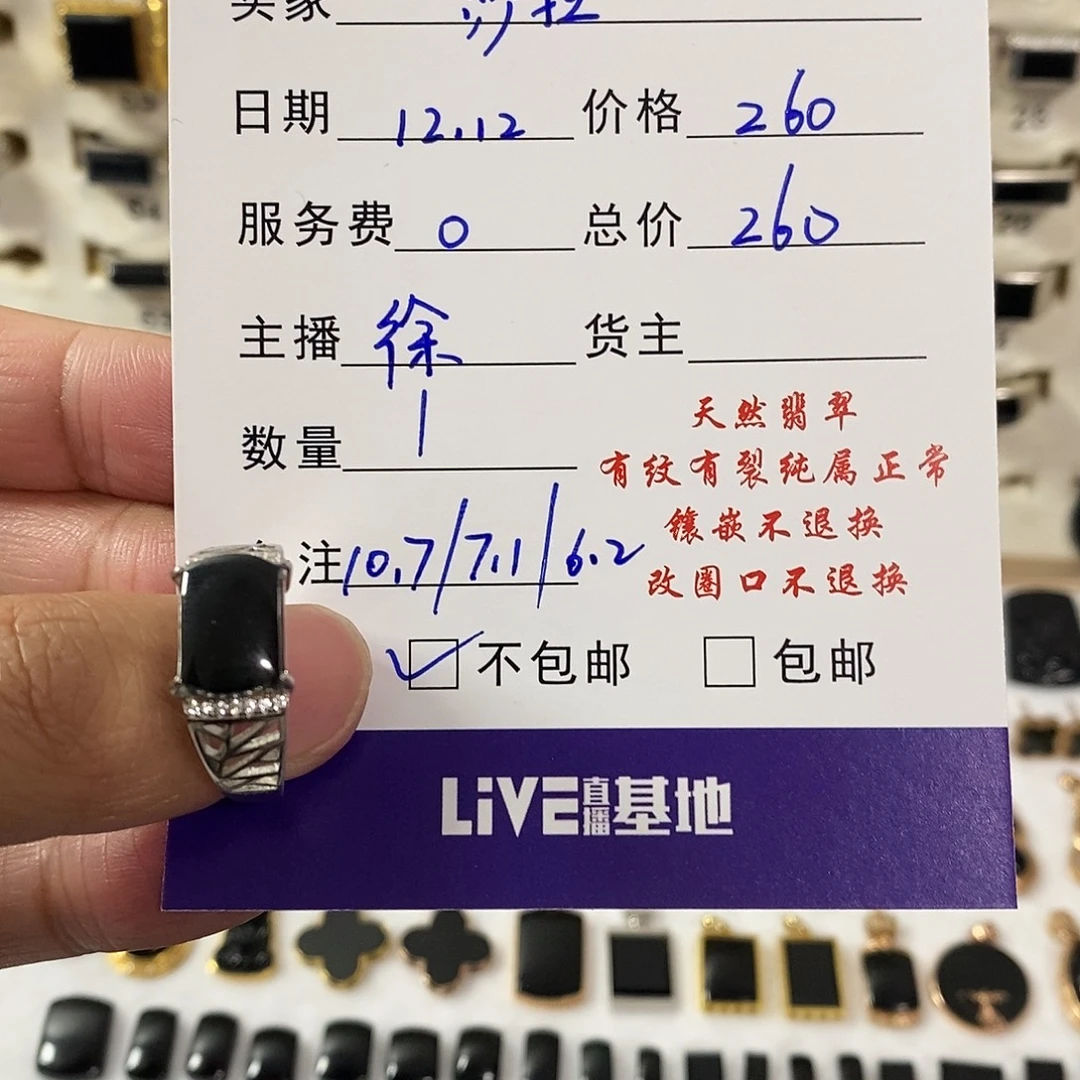 买家 沙拉
日期 12.12 价格 260
服务费 0 总价 260
主播 徐 货主
数量 1
天然翡翠
有纹有裂纯属正常
镶嵌不退换
改圈口不退换
注 10.7/7.1/6.2
不包邮 包邮
LiVE直播基地